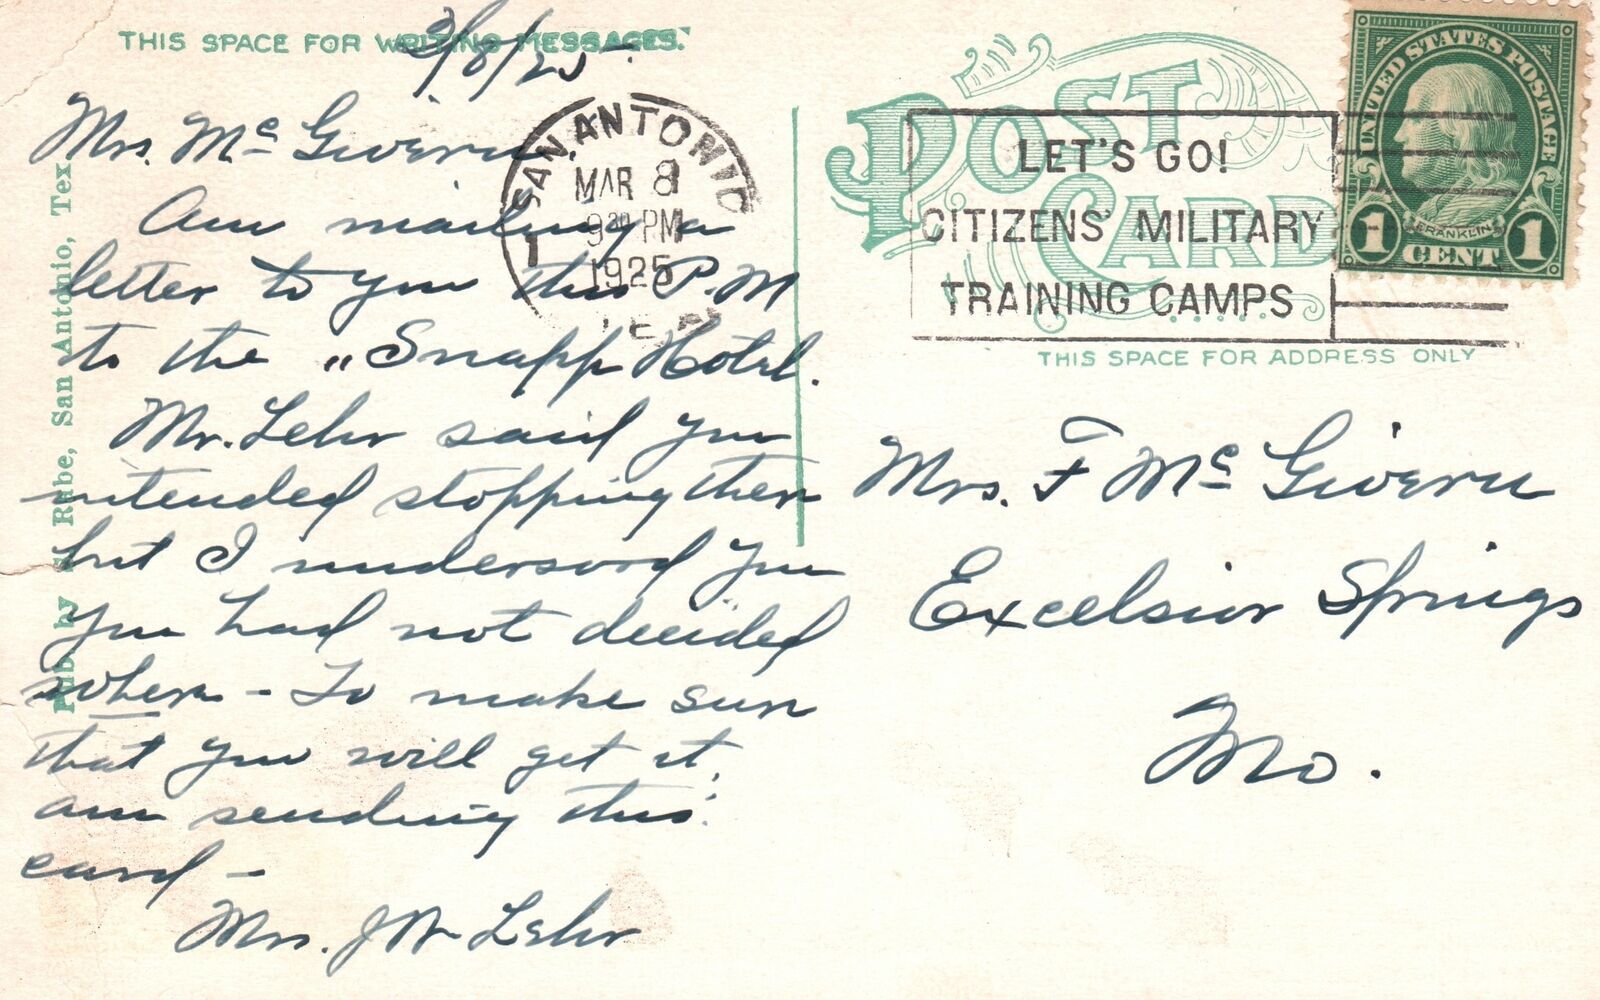 THIS SPACE FOR WRITING MESSAGES.
3/8/25.
Mrs. Mc Givern.
Am mailing a
letter to you this P.M
to the "Snapp Hotel.
Mr. Lehr said you
intended stopping there
but I undersood you
you had not decided
where - To make sure
that you will get it,
am sending this
card -
Mrs. J W Lehr
Rube, San Antonio, Tex.
SAN ANTONIO
MAR 8
9 30 PM
1925
TEX
1
POST CARD
LET'S GO!
CITIZENS' MILITARY
TRAINING CAMPS
UNITED STATES POSTAGE
FRANKLIN
1 CENT 1
THIS SPACE FOR ADDRESS ONLY
Mrs. F Mc Givern
Excelsior Springs
Mo.